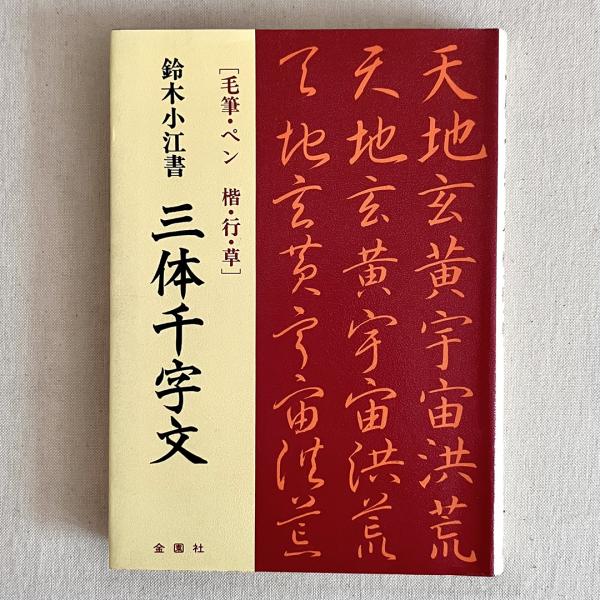 天地玄黄宇宙洪荒
天地玄黄宇宙洪荒
天地玄黄宇宙洪荒
[毛筆・ペン 楷・行・草]
鈴木小江書 三体千字文
金園社